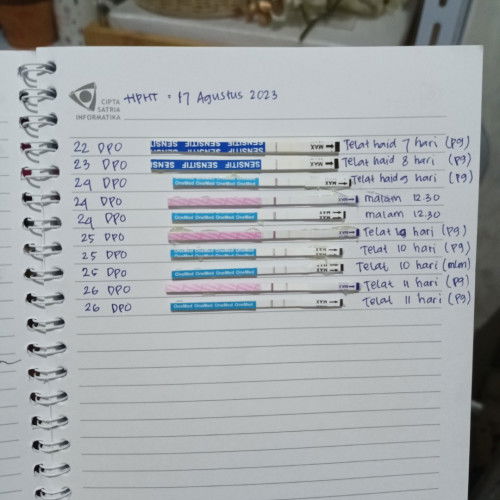 CIPTA
SATRIA
INFORMATIKA
HPHT = 17 Agustus 2023
22 DPO SENSITIF SENSITIF SENSITIF MAX Telat haid 7 hari (pg)
23 DPO SENSITIF SENSITIF SENSITIF MAX Telat haid 8 hari (pg)
24 DPO OneMed OneMed OneMed OneMed MAX Telat haid 9 hari (pg)
24 DPO MAX malam 12.30
24 DPO OneMed OneMed OneMed OneMed MAX malam 12.30
25 DPO MAX Telat 10 hari (pg)
25 DPO OneMed OneMed OneMed OneMed MAX Telat 10 hari (pg)
25 DPO OneMed OneMed OneMed OneMed MAX Telat 10 hari (mlm)
26 DPO MAX Telat 11 hari (pg)
26 DPO OneMed OneMed OneMed OneMed MAX Telat 11 hari (pg)